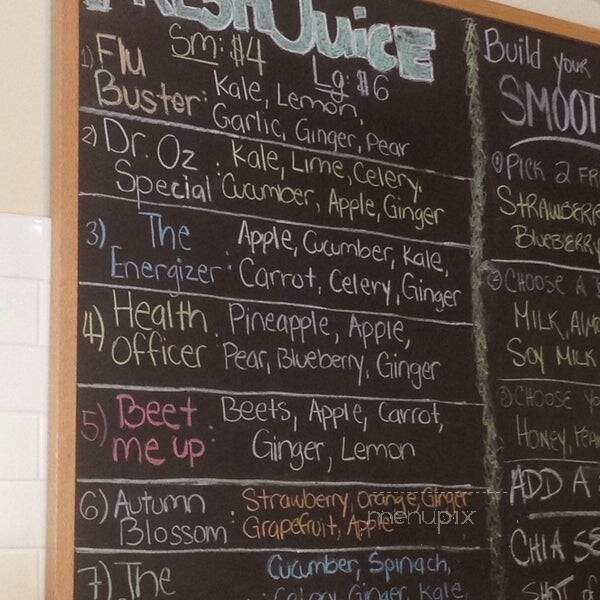 FRESH JUICE
Sm: $4
Lg: $6
1) Flu
Buster:
Kale, Lemon,
Garlic, Ginger, Pear
2) Dr. Oz
Special:
Kale, Lime, Celery,
Cucumber, Apple, Ginger
3) The
Energizer:
Apple, Cucumber, Kale,
Carrot, Celery, Ginger
4) Health
Officer:
Pineapple, Apple,
Pear, Blueberry, Ginger
5) Beet
me up:
Beets, Apple, Carrot,
Ginger, Lemon
6) Autumn
Blossom:
Strawberry, Orange, Ginger
Grapefruit, Apple
menupix
7) The
Cucumber, Spinach,
Celery, Ginger, Kale,
Build your
SMOOT
① PICK 2 FR
STRAWBERR
BLUEBERRY
② CHOOSE A
MILK, ALM
SOY MILK
③ CHOOSE YO
HONEY,
ADD A
CHIA SE
SHOT of